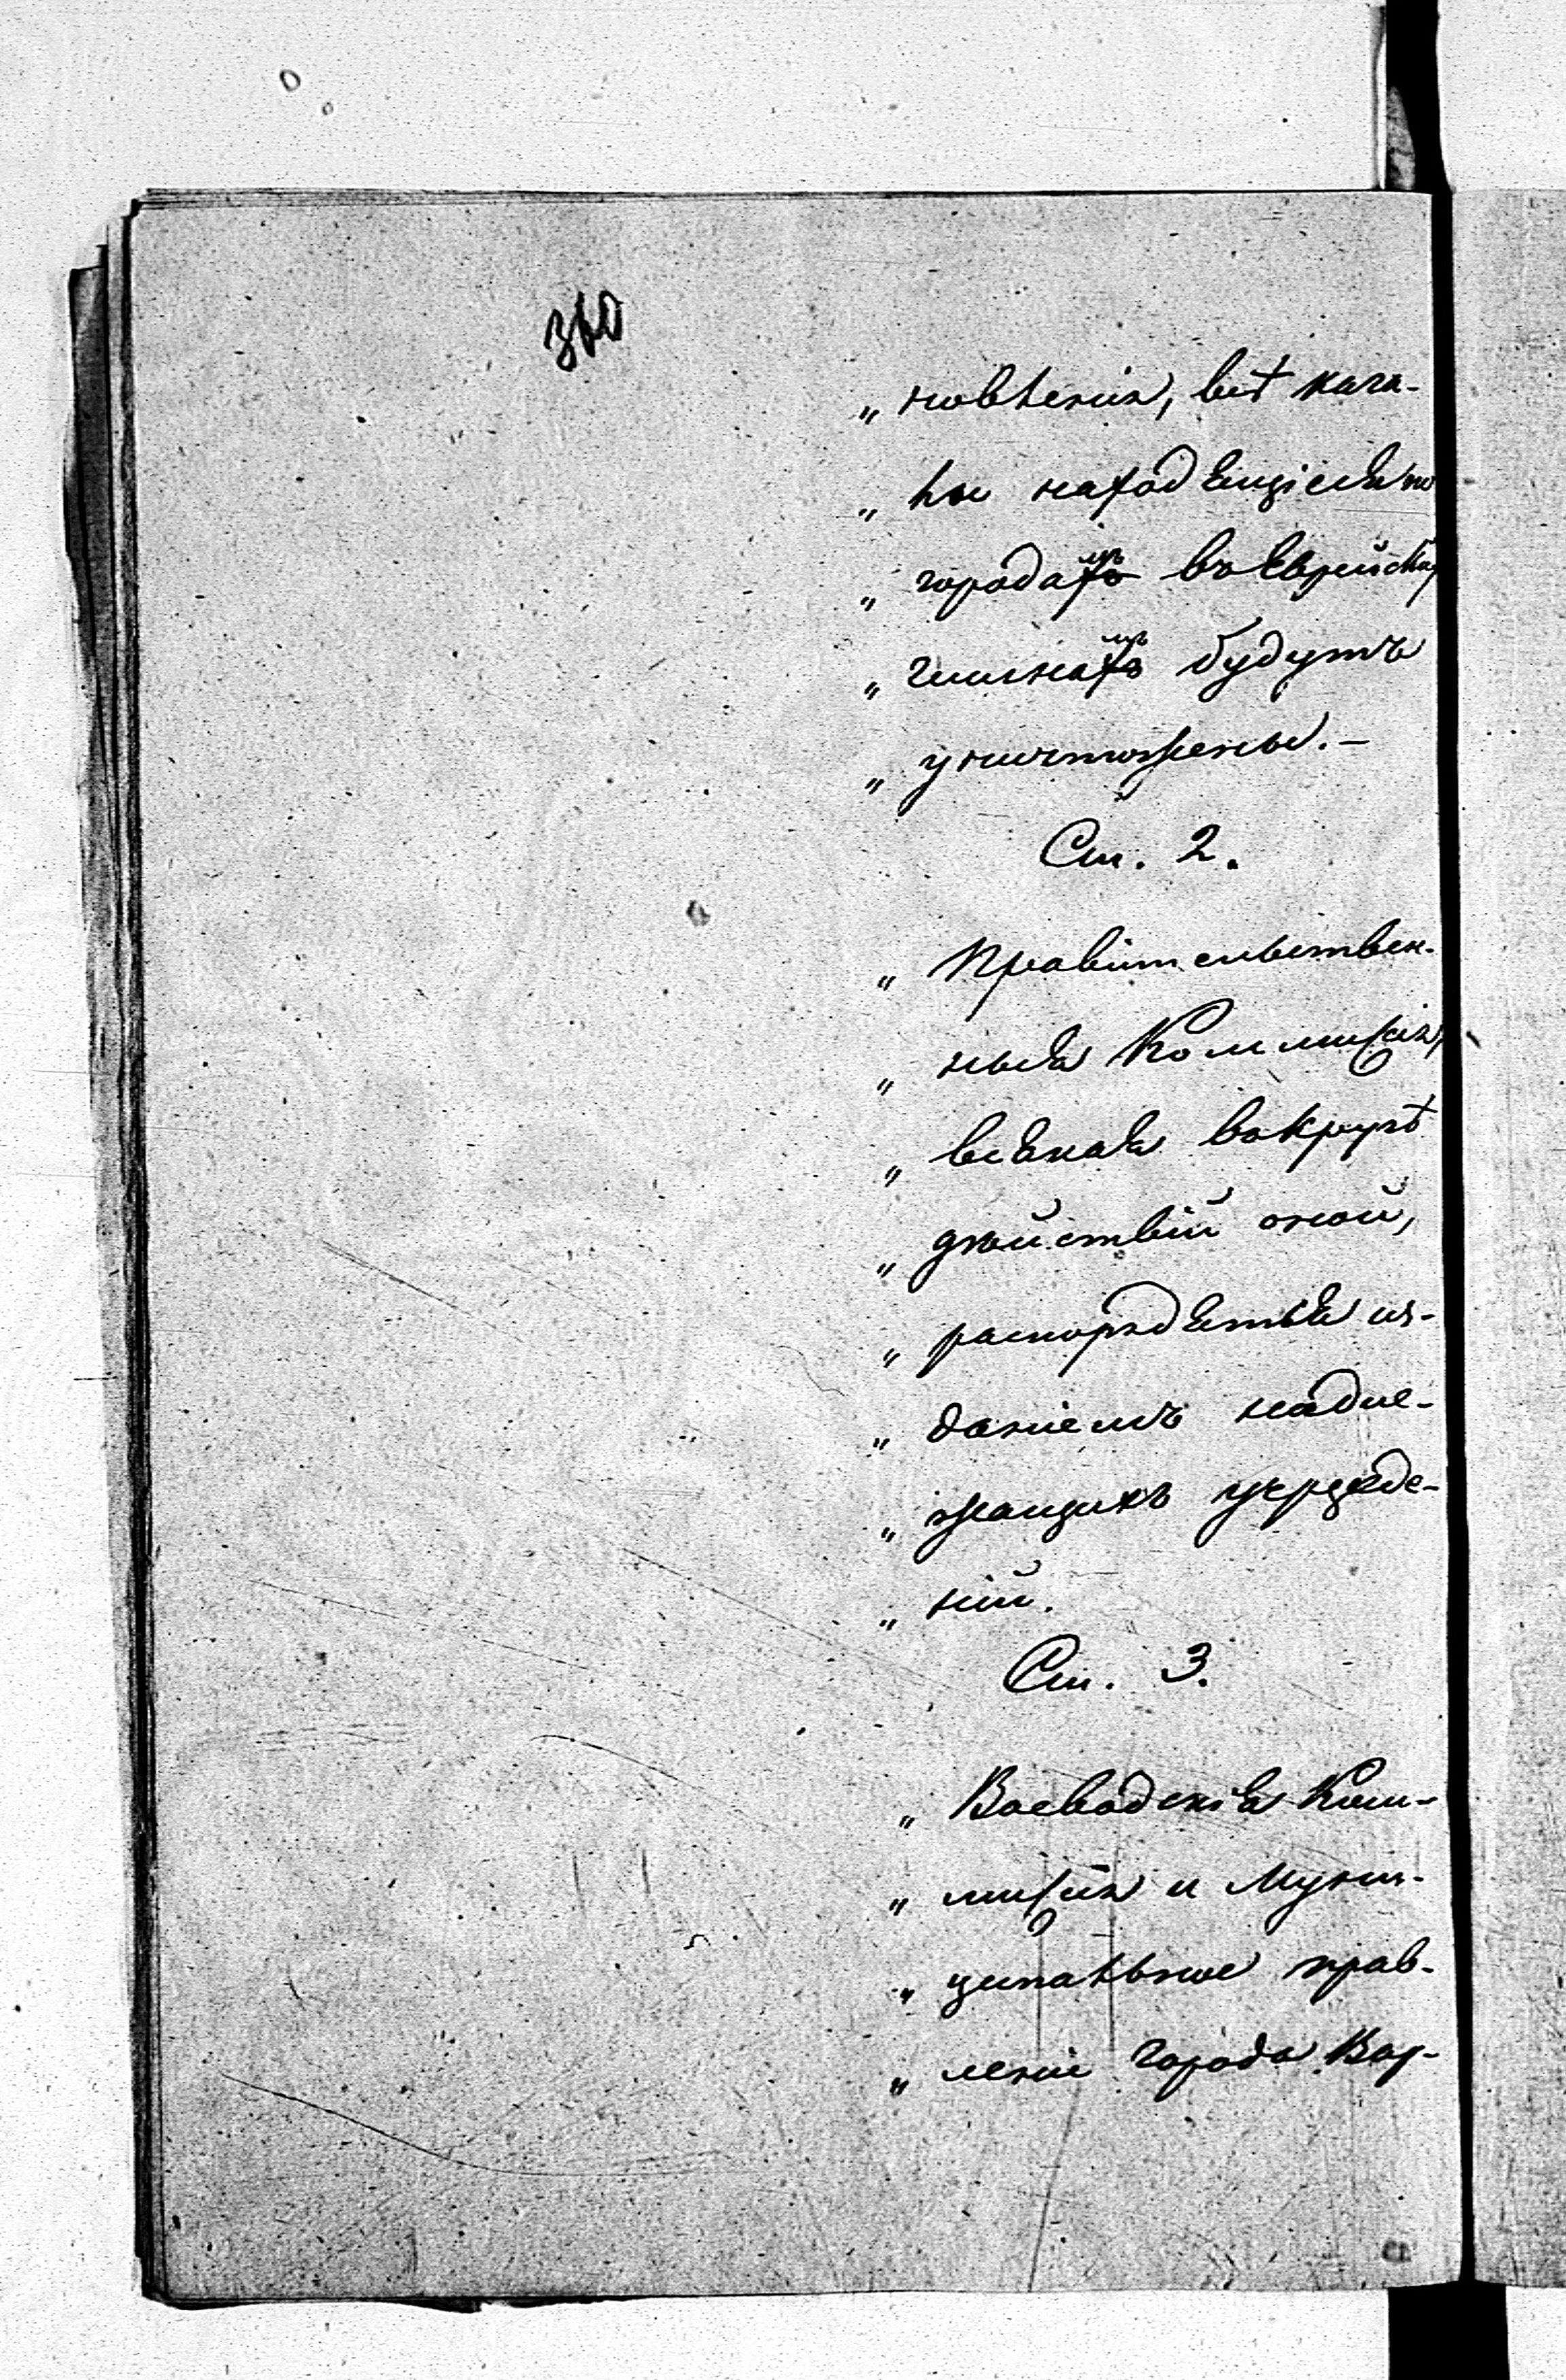 360
„ новленія, всѣ кага-
„ лы находящіеся по
„ городамъ въ Еврейских
„ гминамъ будутъ
„ уничтожены. –
Ст. 2.
„ Правительствен-
„ ныя Коммисіи,
„ всякая вокругѣ
„ дѣйствій оной,
„ распорядятся из-
„ даніемъ надле-
„ жащихъ учрежде-
„ ній.
Ст. 3.
„ Воеводскія Ком-
„ мисіи и Муни-
„ ципальное прав-
„ леніе города Вар-